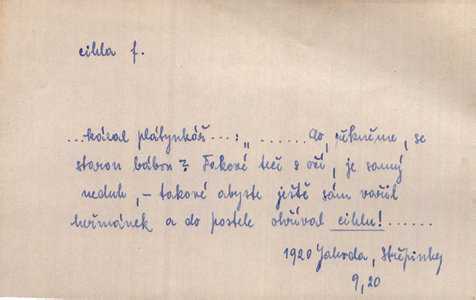 cihla f.
...kázal plátynkář...: „ ...... Co, řekněme, se
starou bábou? Takové teč s očí, je samý
neduh, – takové abyste ještě sám vařil
heřmánek a do postele ohříval cihlu! ......
1920 Jahoda, Střípinky
9, 20